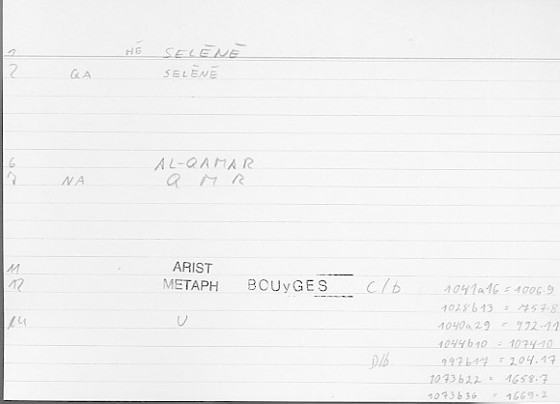 1 HĒ SELĒNĒ
2 QA SELĒNĒ
6 AL-QAMAR
7 NA Q M R
11 ARIST
12 METAPH BOUyGES C/b 1041a16 = 1006.9
1028b13 = 757.8
14 U 1040a29 = 992.11
1044b10 = 1074.10
D/b 997b17 = 204.17
1073b22 = 1658.7
1073b36 = 1669.2